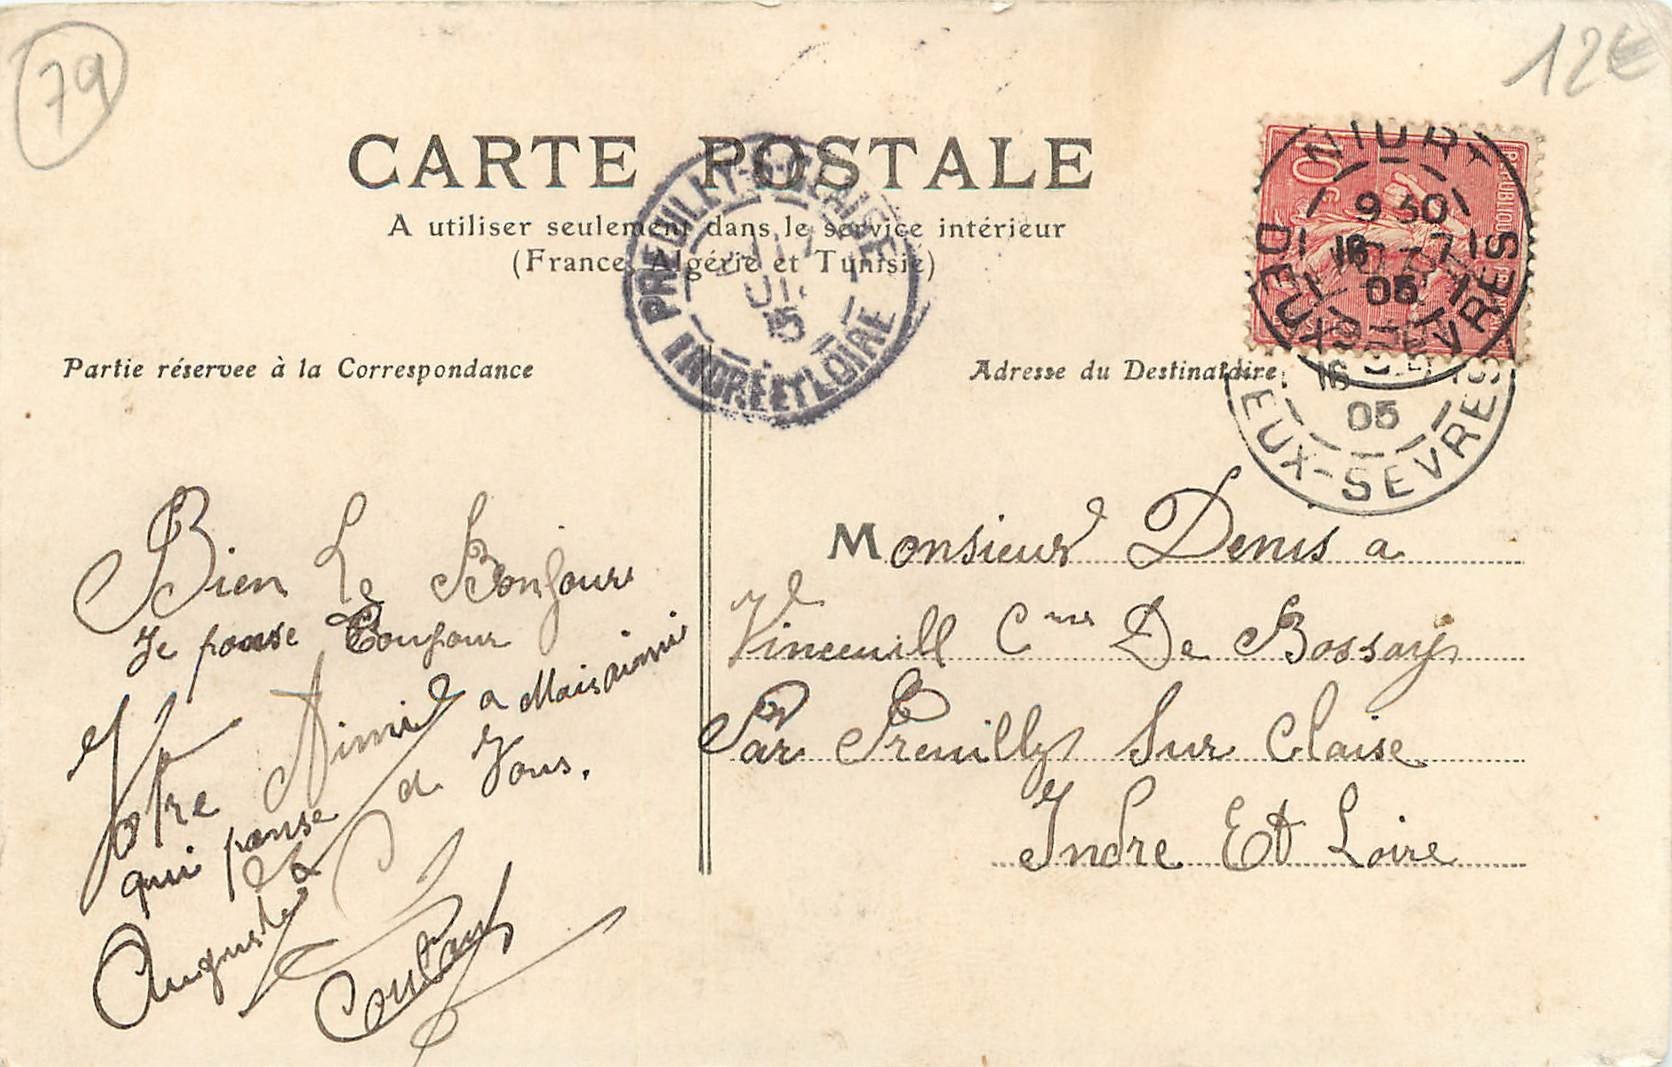 79
12€
CARTE POSTALE
A utiliser seulement dans le service intérieur
(France, Algérie et Tunisie)
PREUILLY-S-CLAISE
INDRE ET LOIRE
NIORT
9 30
16 7
05
DEUX SEVRES
16
05
EUX-SEVRES
Partie réservee à la Correspondance
Adresse du Destinataire
Bien Le Bonjour
Je panse Toujour
Votre Aimie a
qui panse a Vous.
Auguste
Monsieur Denis a
Vineuill Cne De Bossays
Par Preuilly Sur Claise
Indre Et Loire